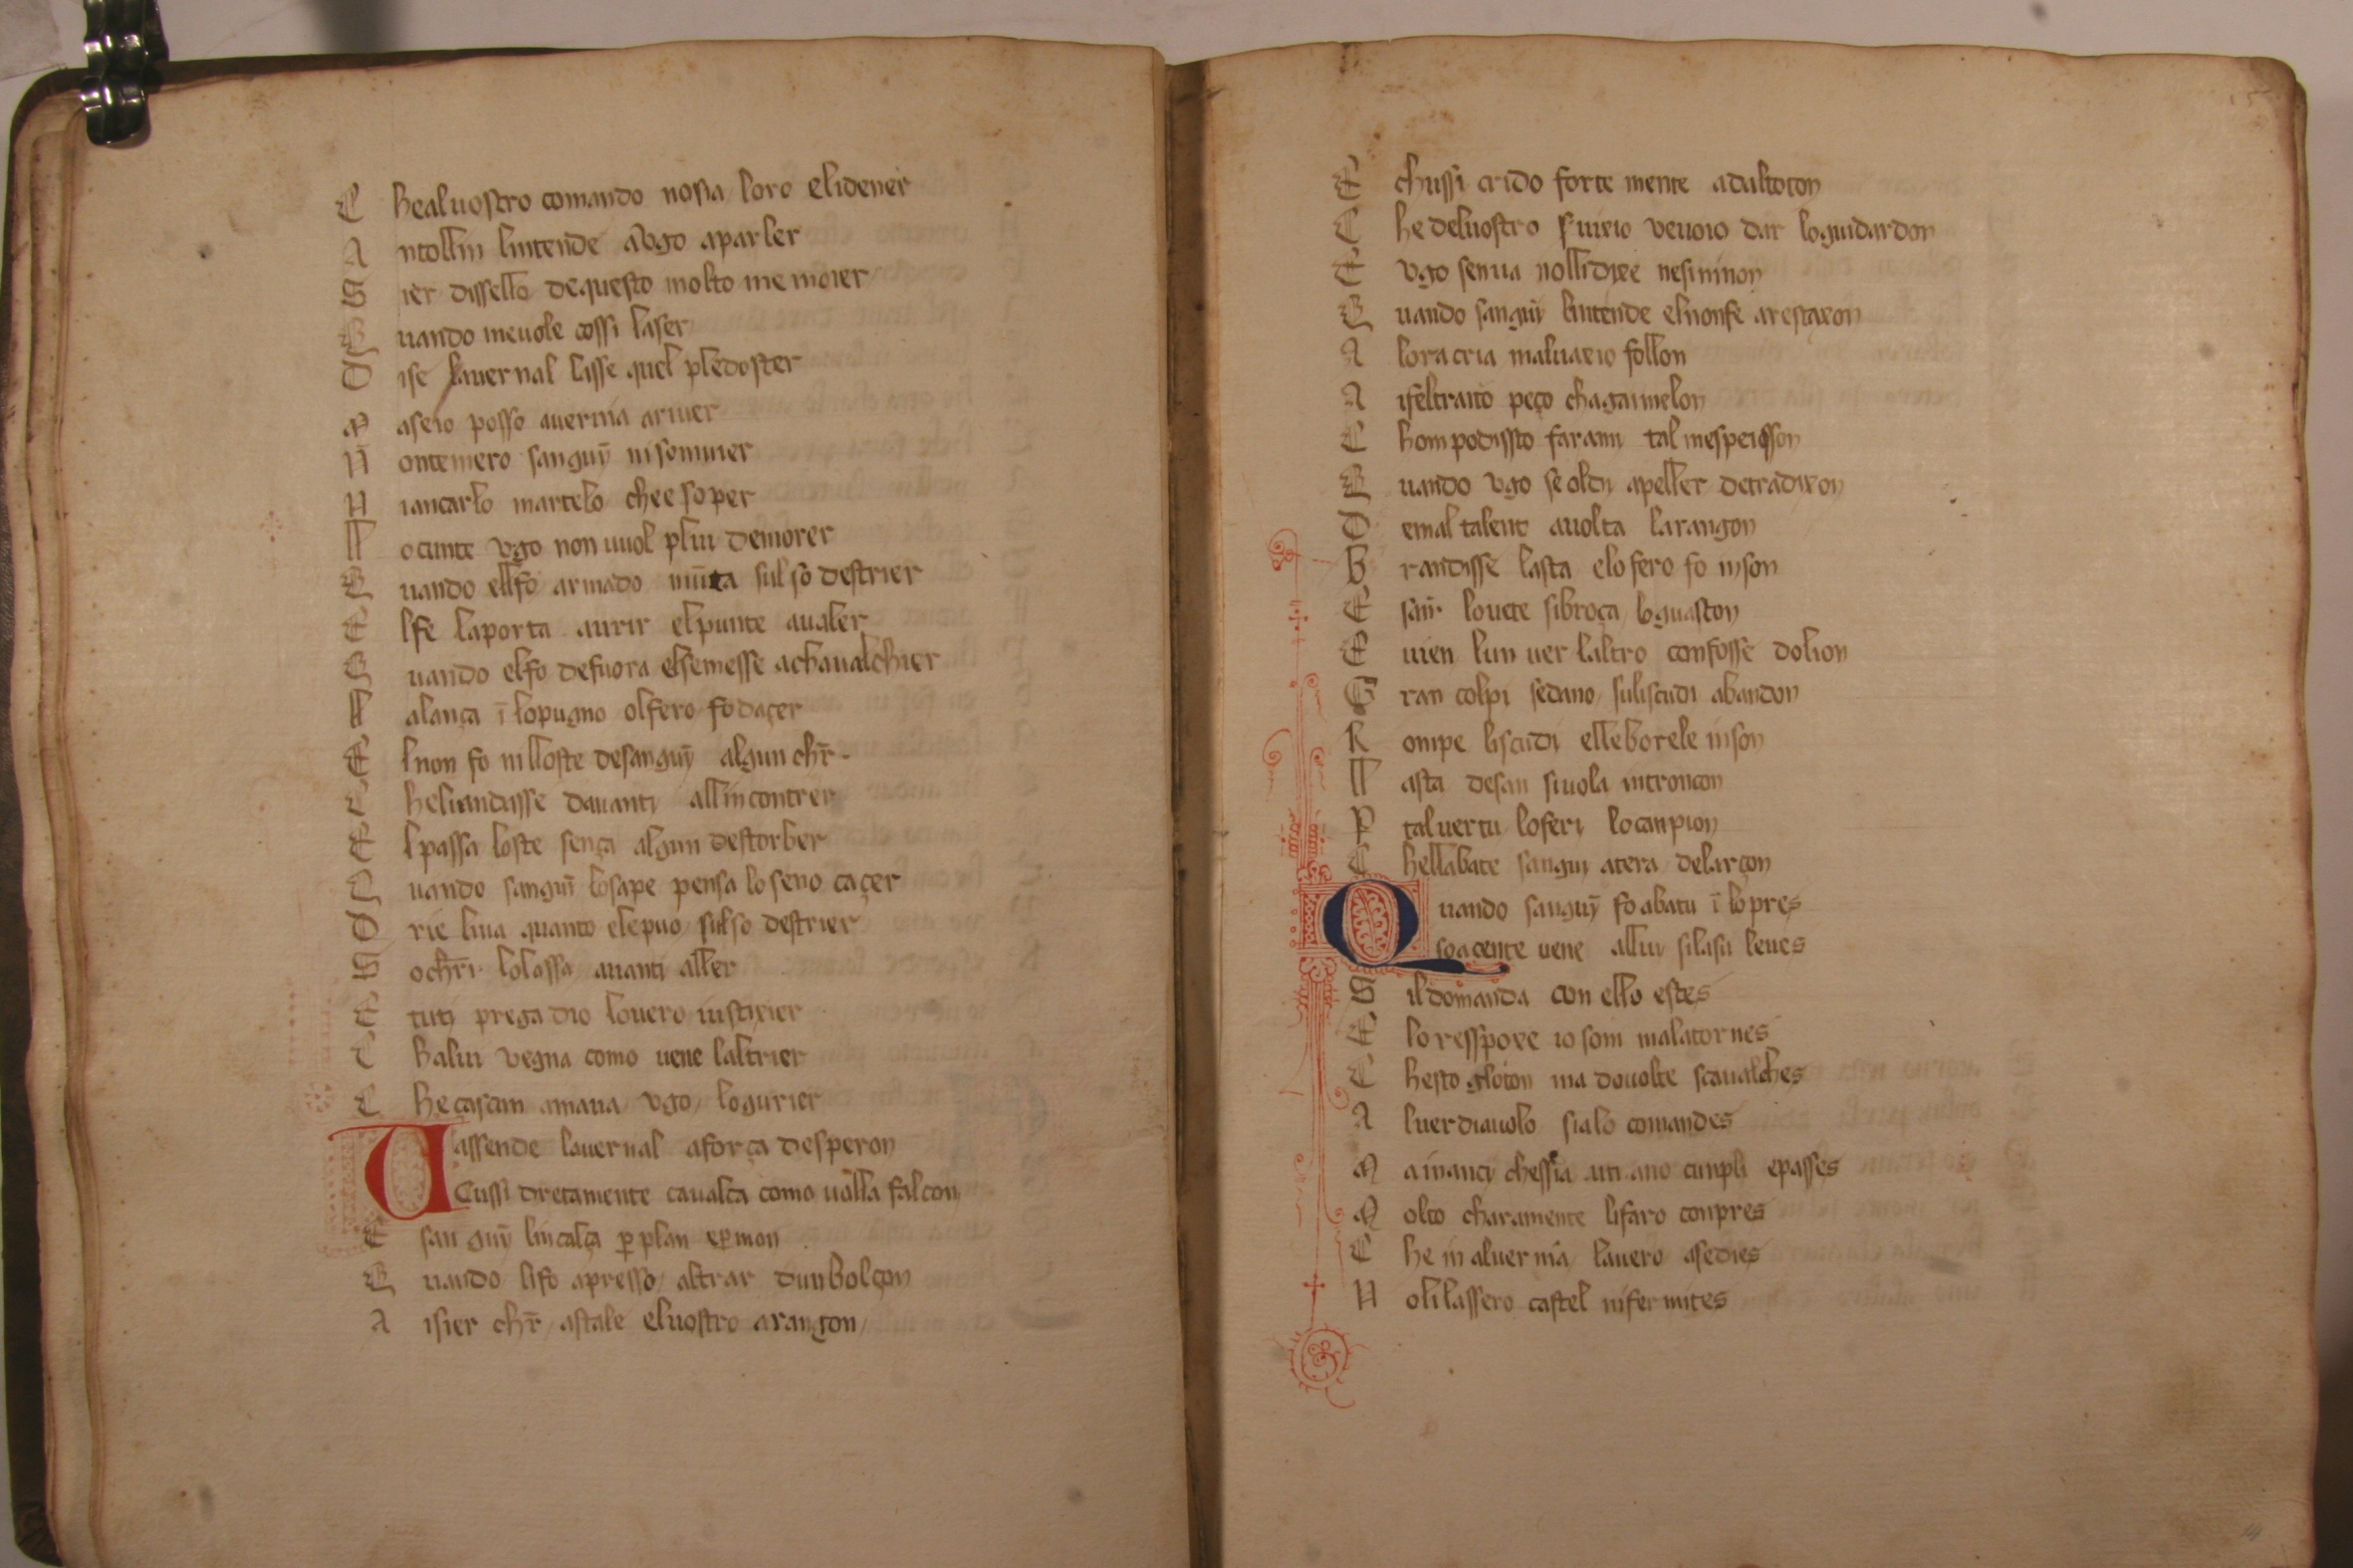 C he al uostro comando no sia loro eli dener
A ntollin lintende a Vgo a parler
S ier disse llo de questo molto me moier
Q uando me uole cossi laser
D ise lauernal lasse quel ple doster
M a se io posso auernia ariuer
N on temero sanguỹ ni somnier
N i an carlo martelo che e so per
L o cunte vgo non uuol plui demorer
Q uando ello fo armado mũta sul so destrier
E l fe la porta aurir el punte aualer
Q uando el fo de fuora el se messe a chaualchier
L a lança ĩ lo pugno ol fero fo daçer
E l non fo ni lloste de sanguỹ algun chr̃
C he li andasse dauanti all incontrer
E l passa loste sença algun destorber
Q uando sanguĩ lo sape pensa lo seno caçer
D rie li ua quanto ele puo sul so destrier
S o chr̃i lo lassa auanti aller
E tuti prega dio louero iustixier
C ha lui vegna como uene laltrier
C he cascun amaua vgo lo gurier
U assende lauernal a força desperon
Cussi dretamente caualca como uolla falcon
E san guỹ lincalça ꝑ plan e ꝑ mon
Q uando li fo apresso al trar dun bolçon
A i sier chr̃ astale el uostro arangon
E chussi crido forte mente ad alto ton
C he del uostro seruixio ve uoio dar lo guidardon
E vgo sen ua no lli dixe ne si ni non
Q uando sanguỹ lintende el non fe arestaxon
A lora cria maluaxio follon
A i fel traito peço cha gainelon
C hom podissto farami tal mespreisson
Q uando vgo se oldi apeller de tradixon
D e mal talent auolta larangon
B randisse lasta e lo fero fo in son
E san louete si broça lo guaston
E uien lun uer laltro con fosse do lion
G ran colpi se dano suli scudi abandon
R ompe li scudi elle borele in son
L asta de san si uola in troncon
P tal vertu lo feri lo canpion
C hellabate sanguỹ a tera de larçon
Q uando sanguỹ fo abatu ĩ lo pres
soa cente uene allui si lasu leues
S il domanda con ello estes
E lo resspoxe io som mal atornes
C hesto gloton ma do uolte scaualches
A luer diauolo sia lo comandes
M a inanci chessia un ano cunpli e passes
M olto charamente li faro conpres
C he in aluernia lauero asedies
N o li lassero castel ni fermites